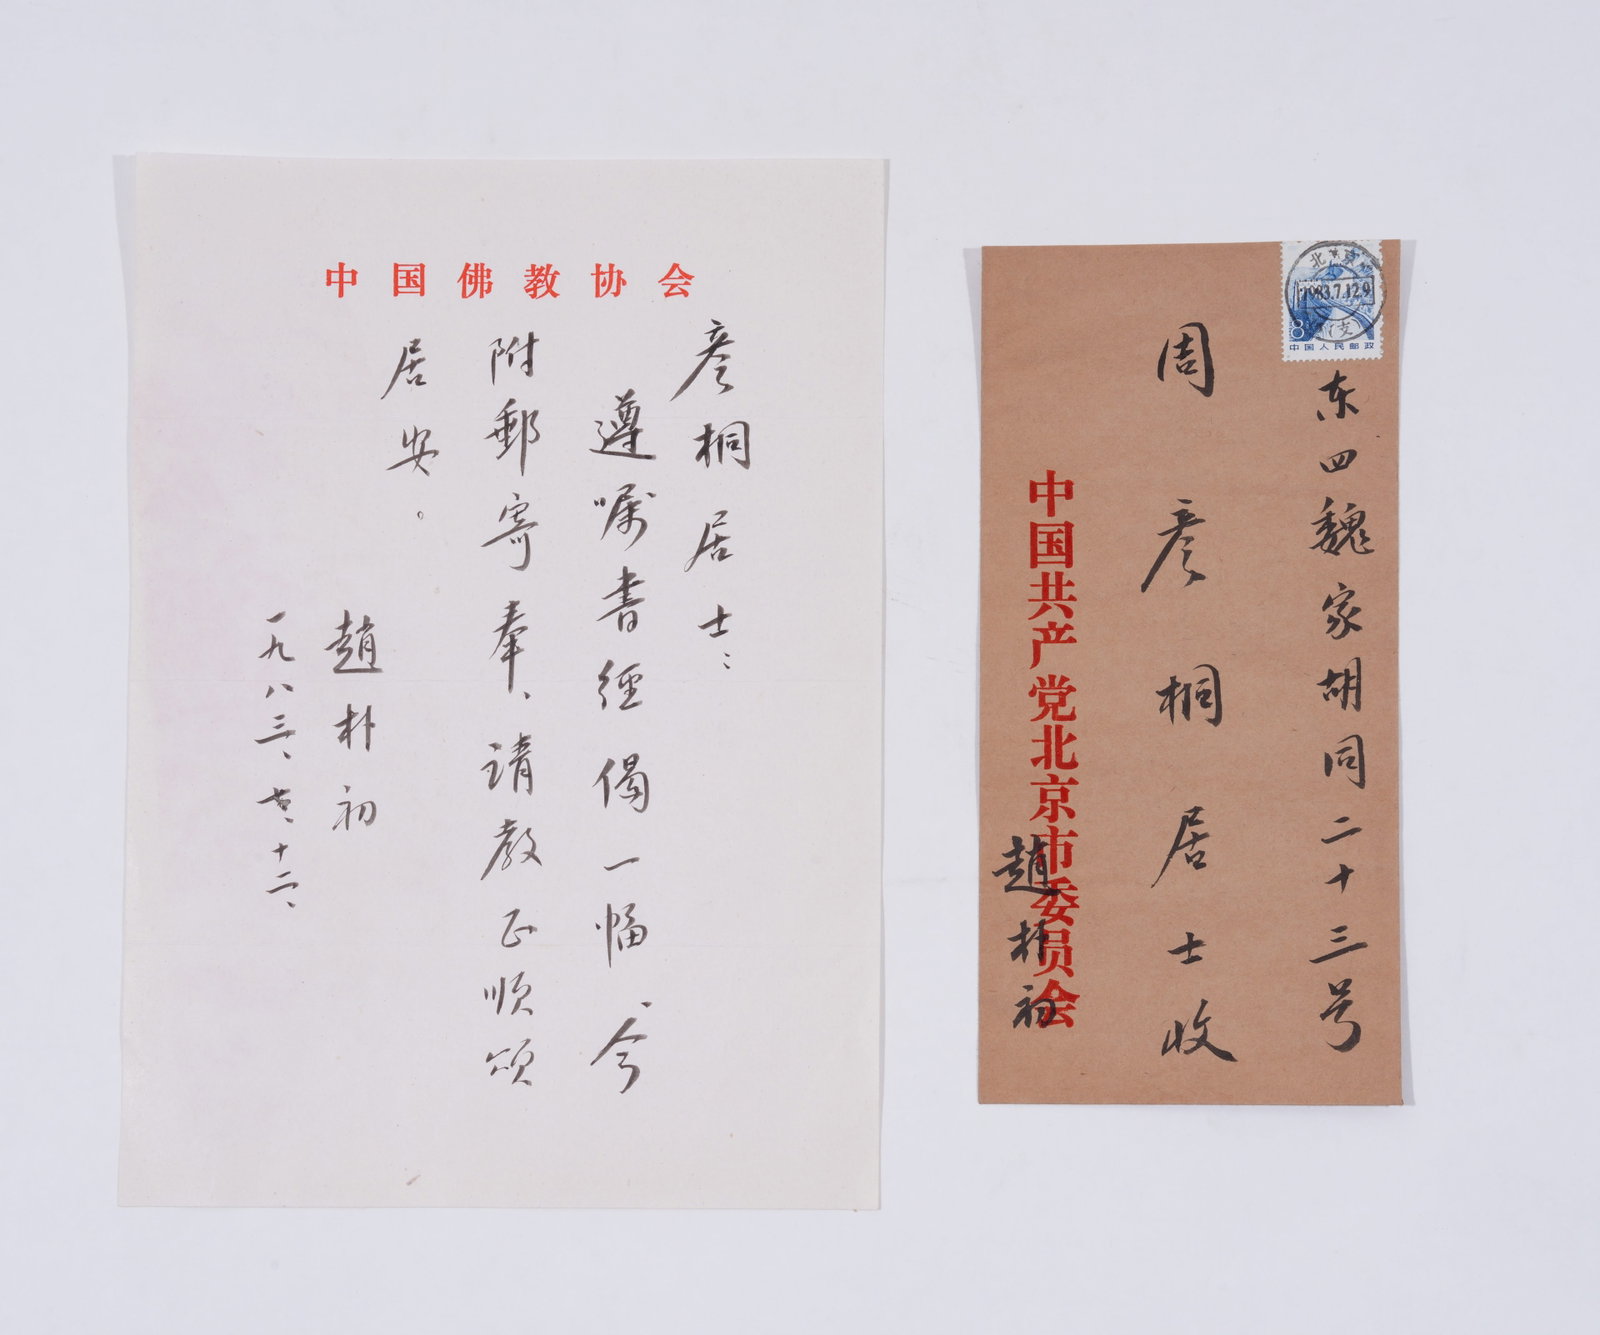 中国佛教协会
彦桐居士：
遵嘱书經偈一幅、今
附郵寄奉、请教正顺颂
居安。
趙朴初
一九八三、七、十二、
北京
1983.7.12.9
支
8
中国人民邮政
东四魏家胡同二十三号
周彦桐居士收
中国共产党北京市委员会
趙朴初